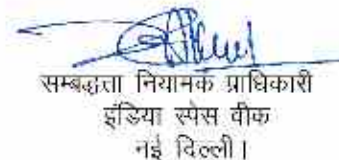 सम्बद्धता नियामक प्राधिकारी
इंडिया स्पेस वीक
नई दिल्ली।